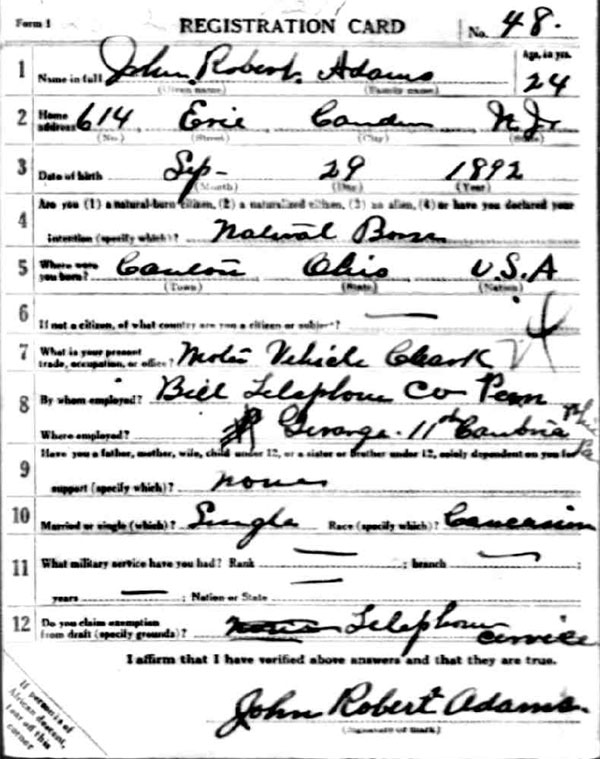 Form 1 REGISTRATION CARD No. 48.
1 Name in full John Robert Adams Age, in yrs. 24
(Given name) (Family name)
2 Home address 614 Erie Camden N. Jr
(No.) (Street) (City) (State)
3 Date of birth Sep- 29 1892
(Month) (Day) (Year)
Are you (1) a natural-born citizen, (2) a naturalized citizen, (3) an alien, (4) or have you declared your
4 intention (specify which)? Natural Born
5 Where were you born? Canton Ohio U.S.A
(Town) (State) (Nation)
6 If not a citizen, of what country are you a citizen or subject? —
7 What is your present trade, occupation, or office? Motor Vehicle Clark 24
8 By whom employed? Bell Telephone Co Penn
Where employed? Garage. 11th Cambria Phila Pa
9 Have you a father, mother, wife, child under 12, or a sister or brother under 12, solely dependent on you for
support (specify which)? none
10 Married or single (which)? Single Race (specify which)? Caucasian
11 What military service have you had? Rank — ; branch — ;
years — ; Nation or State —
12 Do you claim exemption from draft (specify grounds)? Telephone cervice
I affirm that I have verified above answers and that they are true.
John Robert Adams.
(Signature or mark)
If person is of
African descent,
tear off this
corner